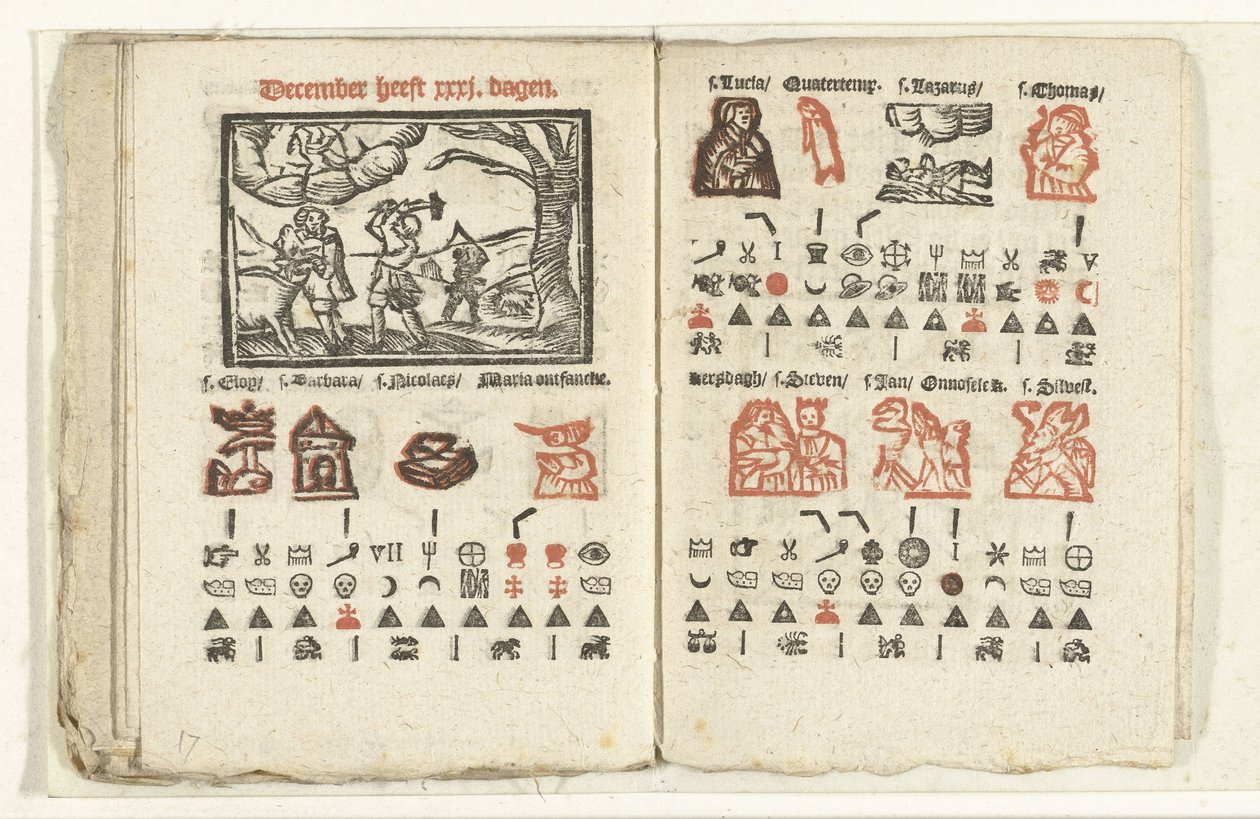 December heeft xxxj. dagen.
s. Eloy/ s. Barbara/ s. Nicolaes/ Maria ontfancke.
VII
17
s. Lucia/ Quatertemp. s. Lazarus/ s. Thomas/
I A
kersdagh/ s. Steven/ s. Jan/ Onnoselek. s. Silvest.
I